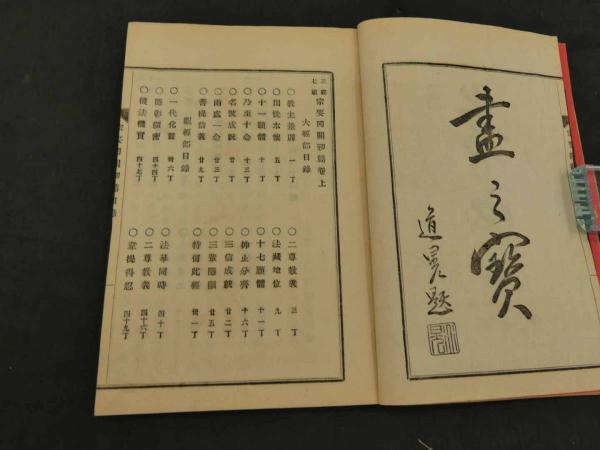 畫之寶
道晃題
三經七祖宗要開關初篇卷上
大經部目錄
○教主差別 一丁
○二尊敎義 三丁
○出世本懷 五丁
○法藏地位 九丁
○十一願體 十丁
○十七願體 十一丁
○乃至十念 十三丁
○抑止分齊 十六丁
○名號成就 廿丁
○三信成就 廿二丁
○兩處一念 廿三丁
○三輩隱顯 廿五丁
○菩提信義 廿九丁
○特留此經 卅一丁
觀經部目錄
○一代化前 卅六丁
○法華同時 四十丁
○隱彰顯密 四十四丁
○二尊敎義 四十六丁
○機法權實 四十七丁
○韋提得忍 四十九丁